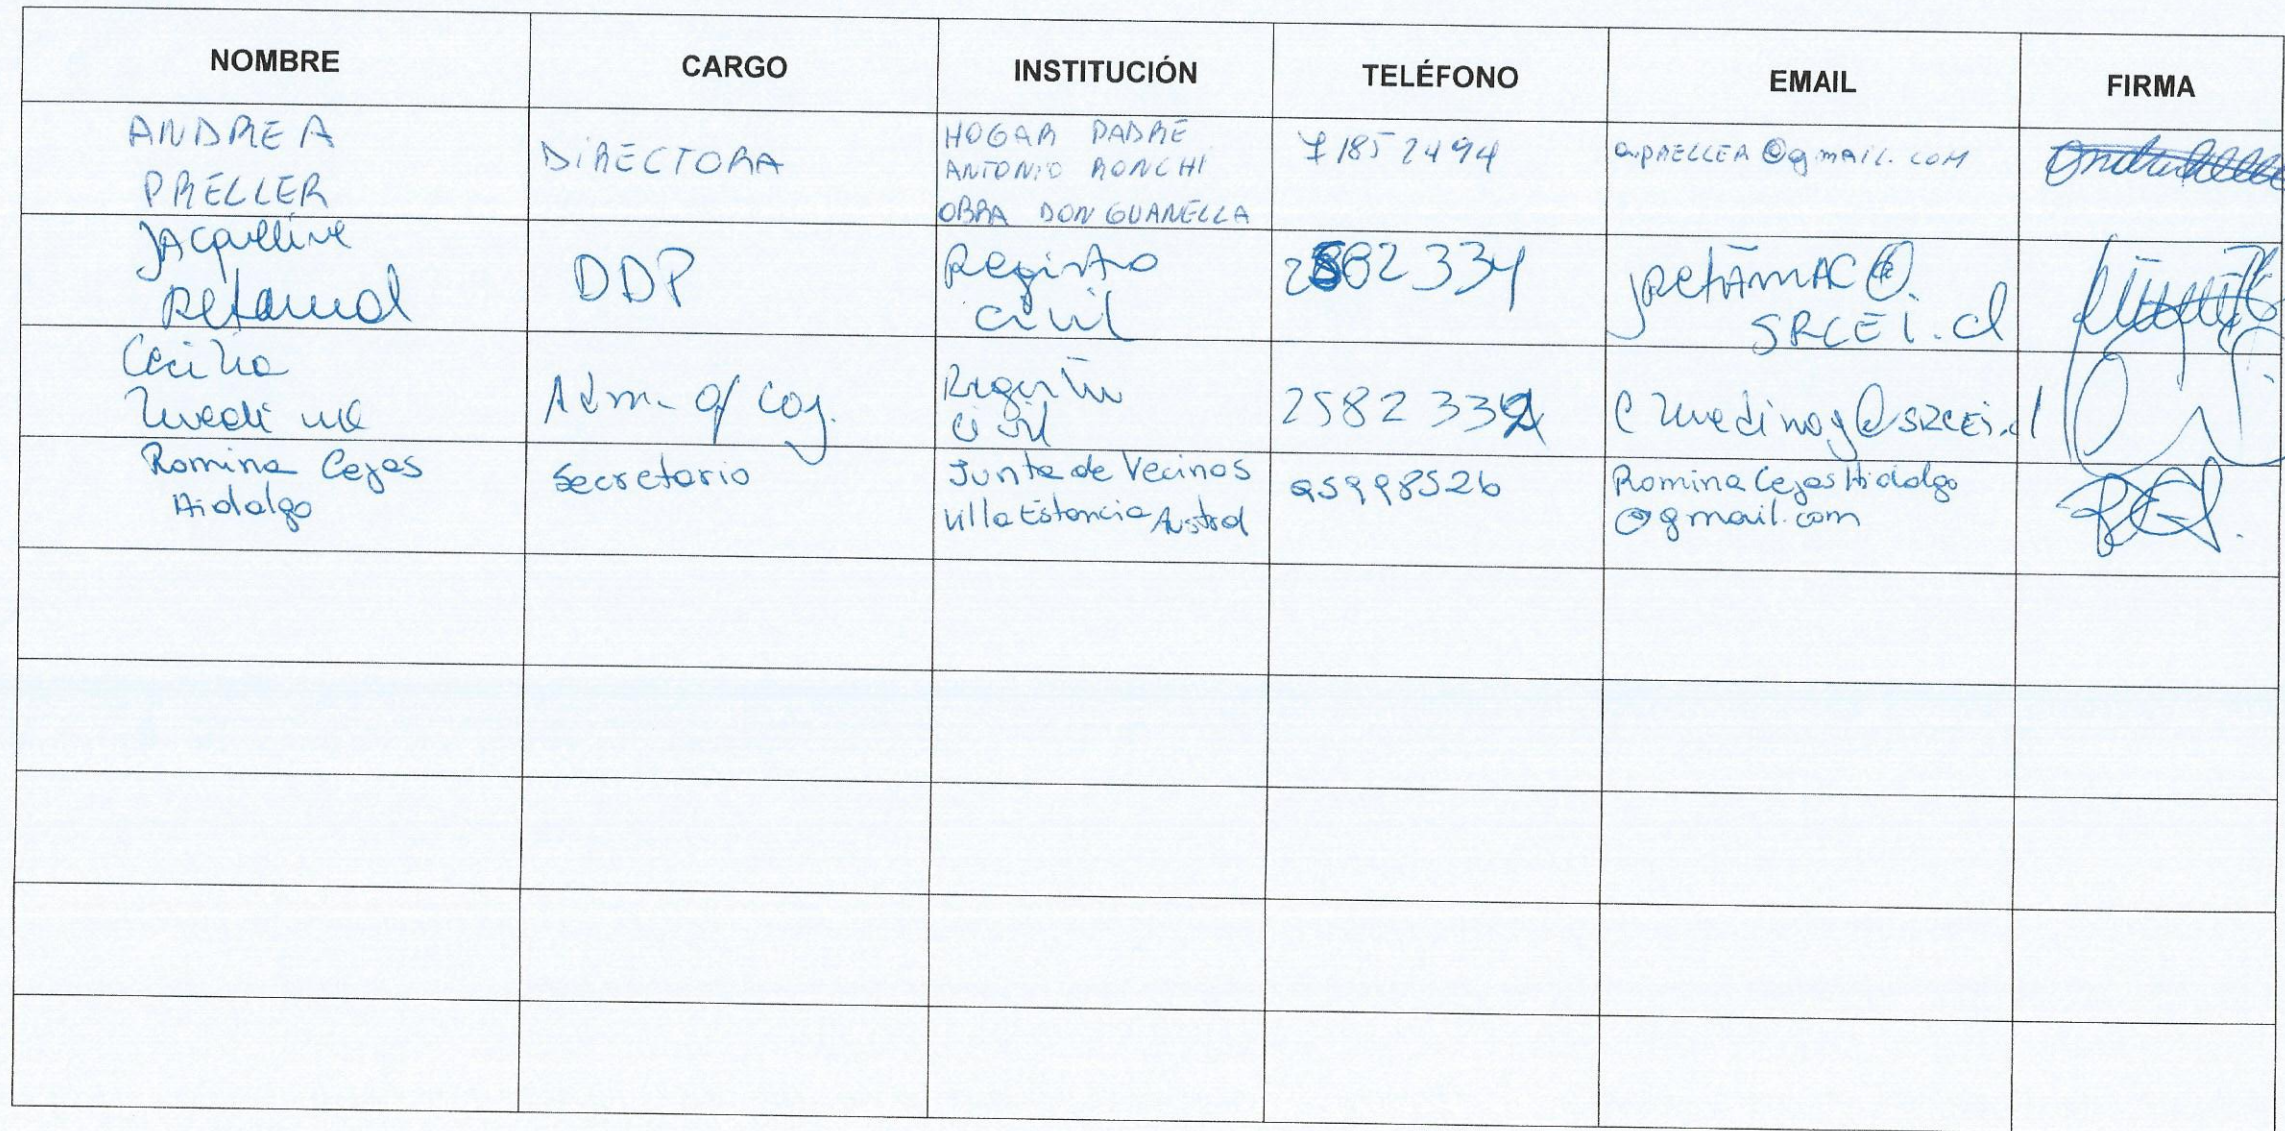 NOMBRE CARGO INSTITUCIÓN TELÉFONO EMAIL FIRMA
ANDREA
PRELLER
DIRECTORA
HOGAR PADRE
ANTONIO RONCHI
OBRA DON GUANELLA
71852494
aPRELLER@gmail.com
Jacqueline
Retamal
DDP
Registro
Civil
2582334
SRCEI.cl
Cecilia
Adm-
Civil
Romina Cejas
Hidalgo
Secretaria
Junta de Vecinos
Villa Estancia Austral
95998526
Romina Cejas Hidalgo
@gmail.com